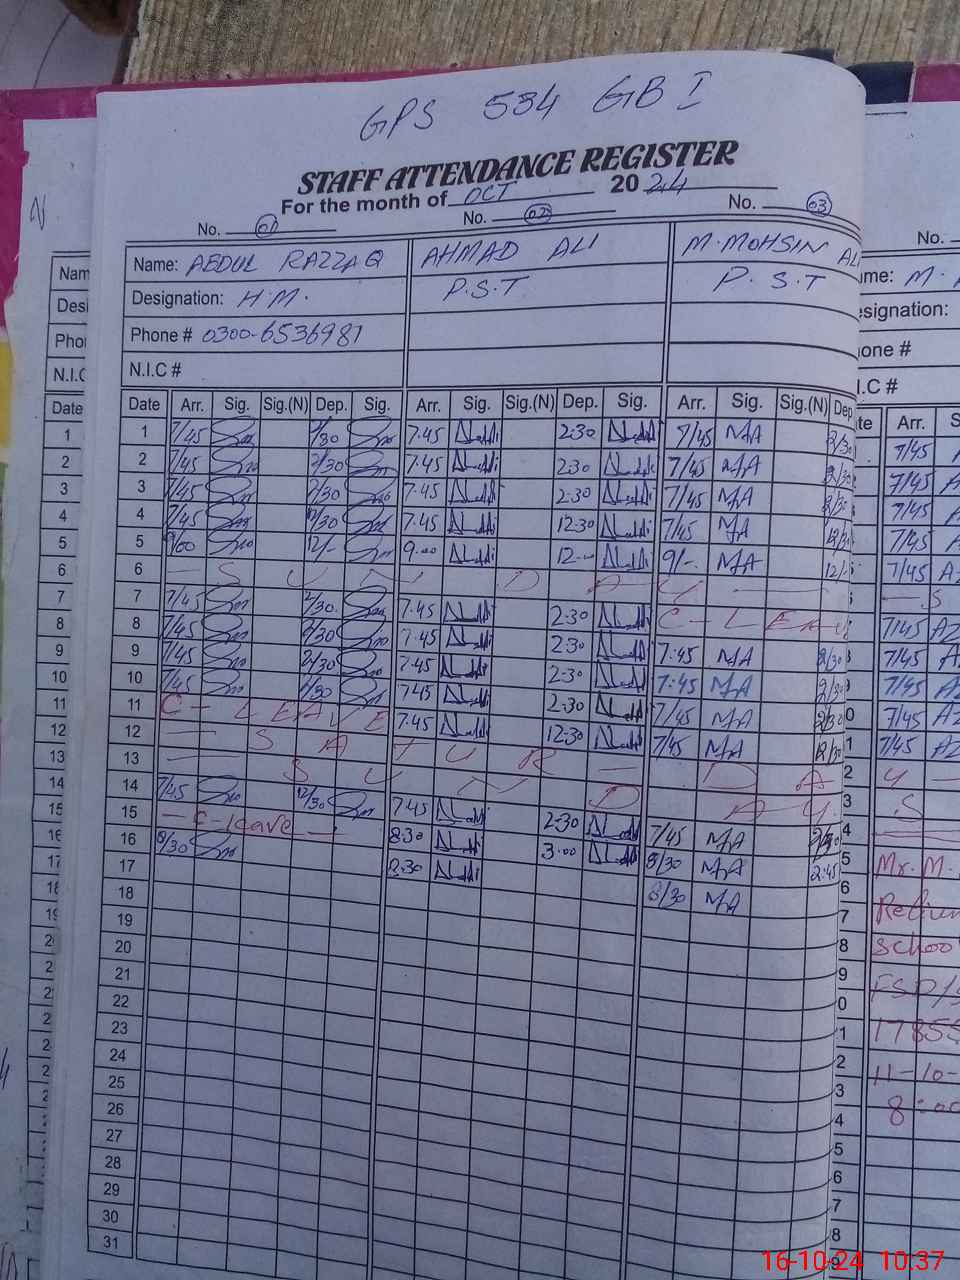 GPS 534 GB I
STAFF ATTENDANCE REGISTER
For the month of OCT 2024
No. 01 No. 02 No. 03 No.
Name: ABDUL RAZZAQ AHMAD ALI M. MOHSIN ALI
Designation: H.M. P.S.T P.S.T esignation:
Phone # 0300-6536981 one #
N.I.C # I.C #
Date Arr. Sig. Sig.(N) Dep. Sig. Arr. Sig. Sig.(N) Dep. Sig. Arr. Sig. Sig.(N) Dep Arr.
1 7/45 2/30 7.45 2.30 7/45 MA 2/30 7/45
2 7/45 2/30 7.45 2.30 7/45 MA 2/30 7/45
3 7/45 2/30 7.45 2.30 7/45 MA 2/30 7/45
4 7/45 12/30 7.45 12.30 7/45 MA 12/30 7/45
5 9/00 12/- 9.00 12.00 9/- MA 12/- 7/45
6 - S U N D A Y -
7 7/45 2/30 7.45 2.30 C-LEAV 7/45
8 7/45 2/30 7.45 2.30 7:45 MA 2/30 7/45
9 7/45 2/30 7.45 2.30 7:45 MA 2/30 7/45
10 7/45 2/30 7.45 2.30 7/45 MA 2/30 7/45
11 C-LEAVE 7.45 12.30 7/45 MA 12/30 7/45
12 - S A T U R - D A Y -
13 - S U N D A Y
14 7/45 12/30 7.45 2.30 7/45 MA 2/30
15 - C-leave - 8.30 3.00 8/30 MA 2:45
16 8/30 8.30 8/30 MA
17
18
19
20
21
22
23
24
25
26
27
28
29
30
31
Mr. M.
School
11-10-
16-10-24 10:37